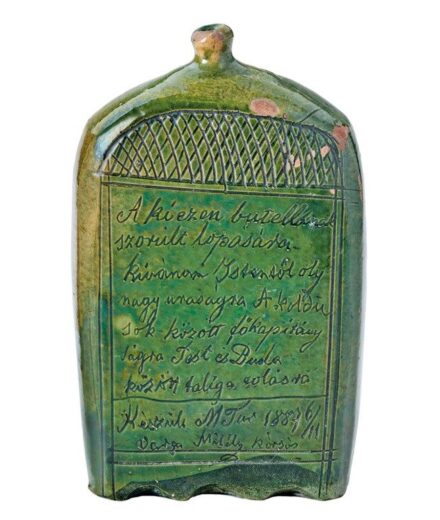 A ki ezen butellának
szorúlt lopására
kivánom Istentől oly
nagy uraságra A koldu
sok között főkapitány
ságra Pest és Buda
között taliga tolásra
Készült M Tur 1887 6/11
Varga Mihály korsós